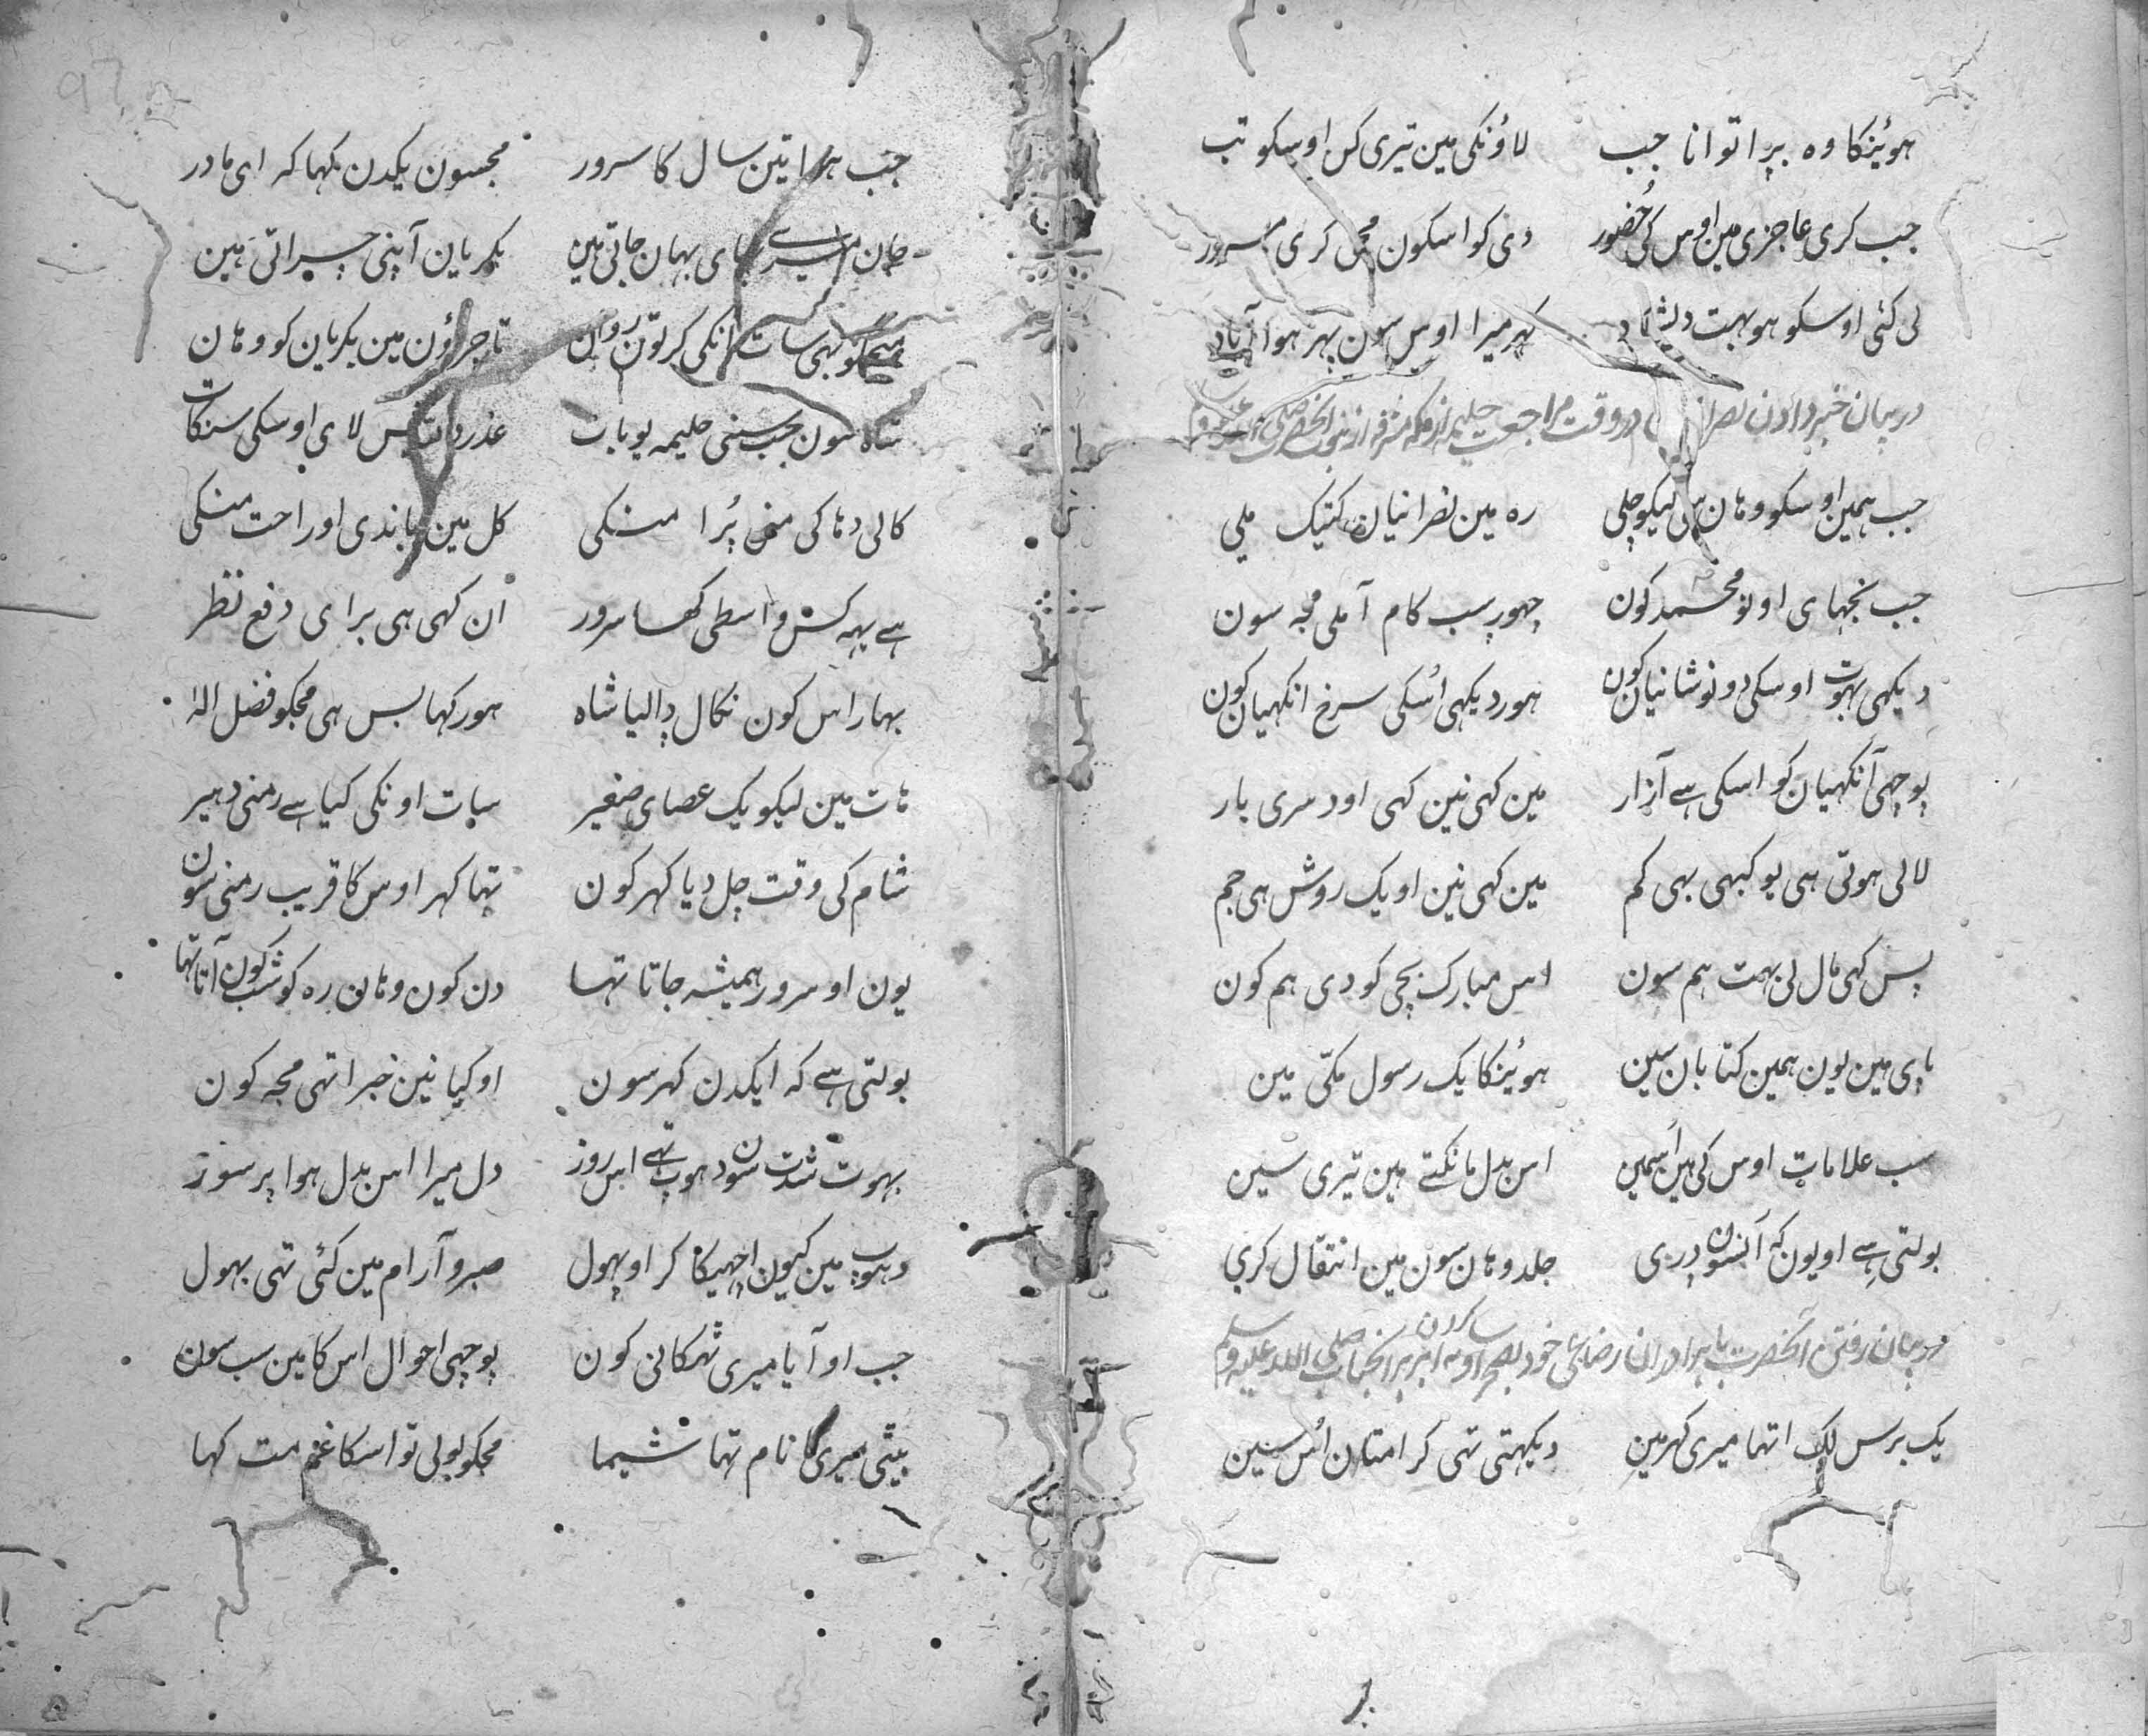 هوئینکا وه بڑا توانا جب لاؤنکی مین تیری کن اوسکو تب
جب کری عاجزی مین اوس کی حُضور دی کو اسکون مجھی کری مسرور
لی کئی اوسکو هو بهت دلشاد کهر میرا اوس سون بهر هوا آباد
در بیان خبر دادن در وقت مراجعت حلیمه از مکه مشرفه
جب همین اوسکو وهان سی لیکو چلی ره مین نصرانیان کتیک ملی
جب نجهای او نو محمد کون چهور سب کام آ ملی مجه سون
دیکهی بهوت اوسکی دو نو شانیان کون هور دیکهی اُسکی سرخ انکهیان کون
پوچهی آنکهیان کو اسکی هے آزار مین کهی نین کهی او دسری بار
لالی هوتی هی یو کبهی بهی کم مین کهی نین او یک روش هی جم
پس کهی مال لی بهت هم سون اس مبارک بچی کو دی هم کون
پای مین یون همین کتابان سین هوئینکا یک رسول مکّی مین
سب علامات اوس کی هین اسمین اس بدل مانکتے هین تیری سین
بولتی هے او یون که آنسون دری جلد وهان سون مین انتقال کری
در بیان رفتن آنحضرت با برادران رضاعی خود بصحرا و سایه کردن ابر بر آنجناب صلی الله علیه وسلم
یک برس لک اتها میری کهر مین دیکهتی تهی کرامتان اُس سین
جب هوا تین سال کا سرور مجسون یکدن کها که ای مادر
جان میرے بهای بهان جاتی هین بکریان آپنی چراتی هین
منجکو بهی سات انکی کر تون روان تا چراؤن مین بکریان کو وهان
شاه سون جب سنی حلیمه یو بات عذر لای اوسکی سنکات
کالی دهاکی منی پُرا منکی کل مین باندی او راحت منکی
هے یهه کس واسطی کها سرور ان کهی هی برای دفع نظر
بهار اس کون نکال دالیا شاه هور کها بس هی مجکو فضل اله
هات مین لیکو یک عصای صغیر سات اونکی کیا هے رمنی دهیر
شام کی وقت چل دیا کهر کون تها کهر اوس کا قریب رمنی سون
یون او سرور همیشه جاتا تها دن کون وهان ره کو شب کون آتا تها
بولتی هے که ایکدن کهر سون او کیا نین خبر اتهی مجه کون
بهوت شدت سون دهوپ تهے اس روز دل میرا اس بدل هوا پر سوز
دهوپ مین کیون اچهیکا کر او پهول صبر و آرام مین کئی تهی بهول
جب او آیا میری ٹهکانی کون پوچهی احوال اس کا مین سب سون
بیٹی میری کا نام تها شیما مجکو بولی تو اسکا غم مت کها